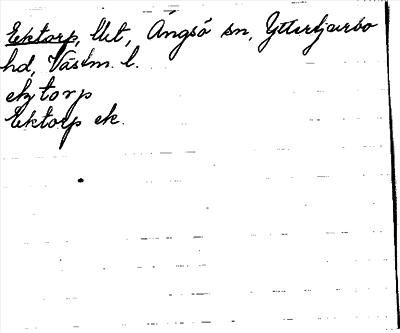 Ektorp, Ut, Ängsö sn, Yttertjurbo
hd, Västm. l.
ektorp
Ektorp ek.